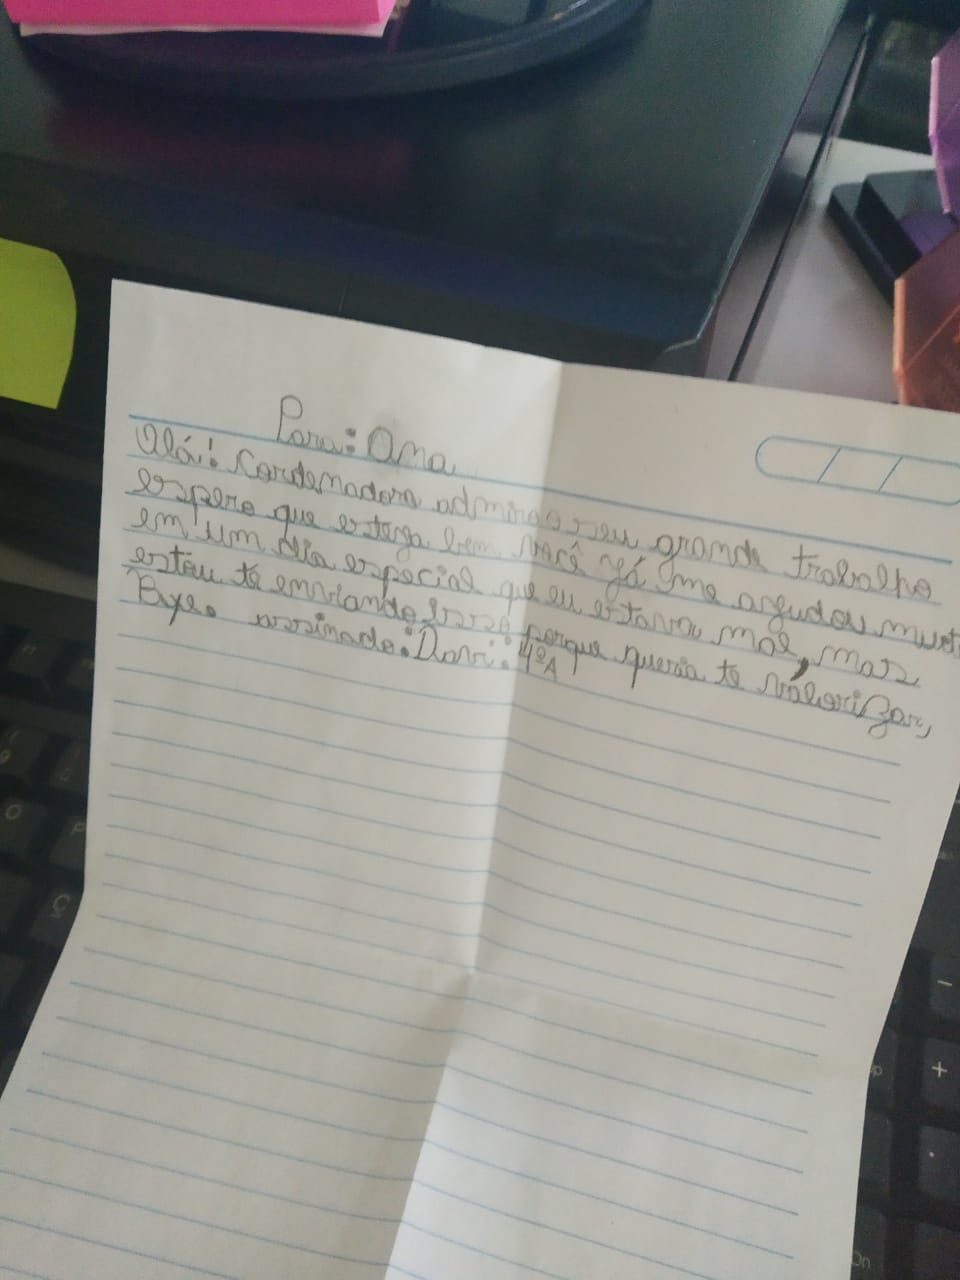 Para: Ana
Olá! Cordenadora admiro seu grande trabalho
espero que esteja bem você já me ajudou muito
em um dia especial que eu estava mal, mas
estou te enviando essa porque queria te valorizar,
Bye. assinado: Davi: 4ºA